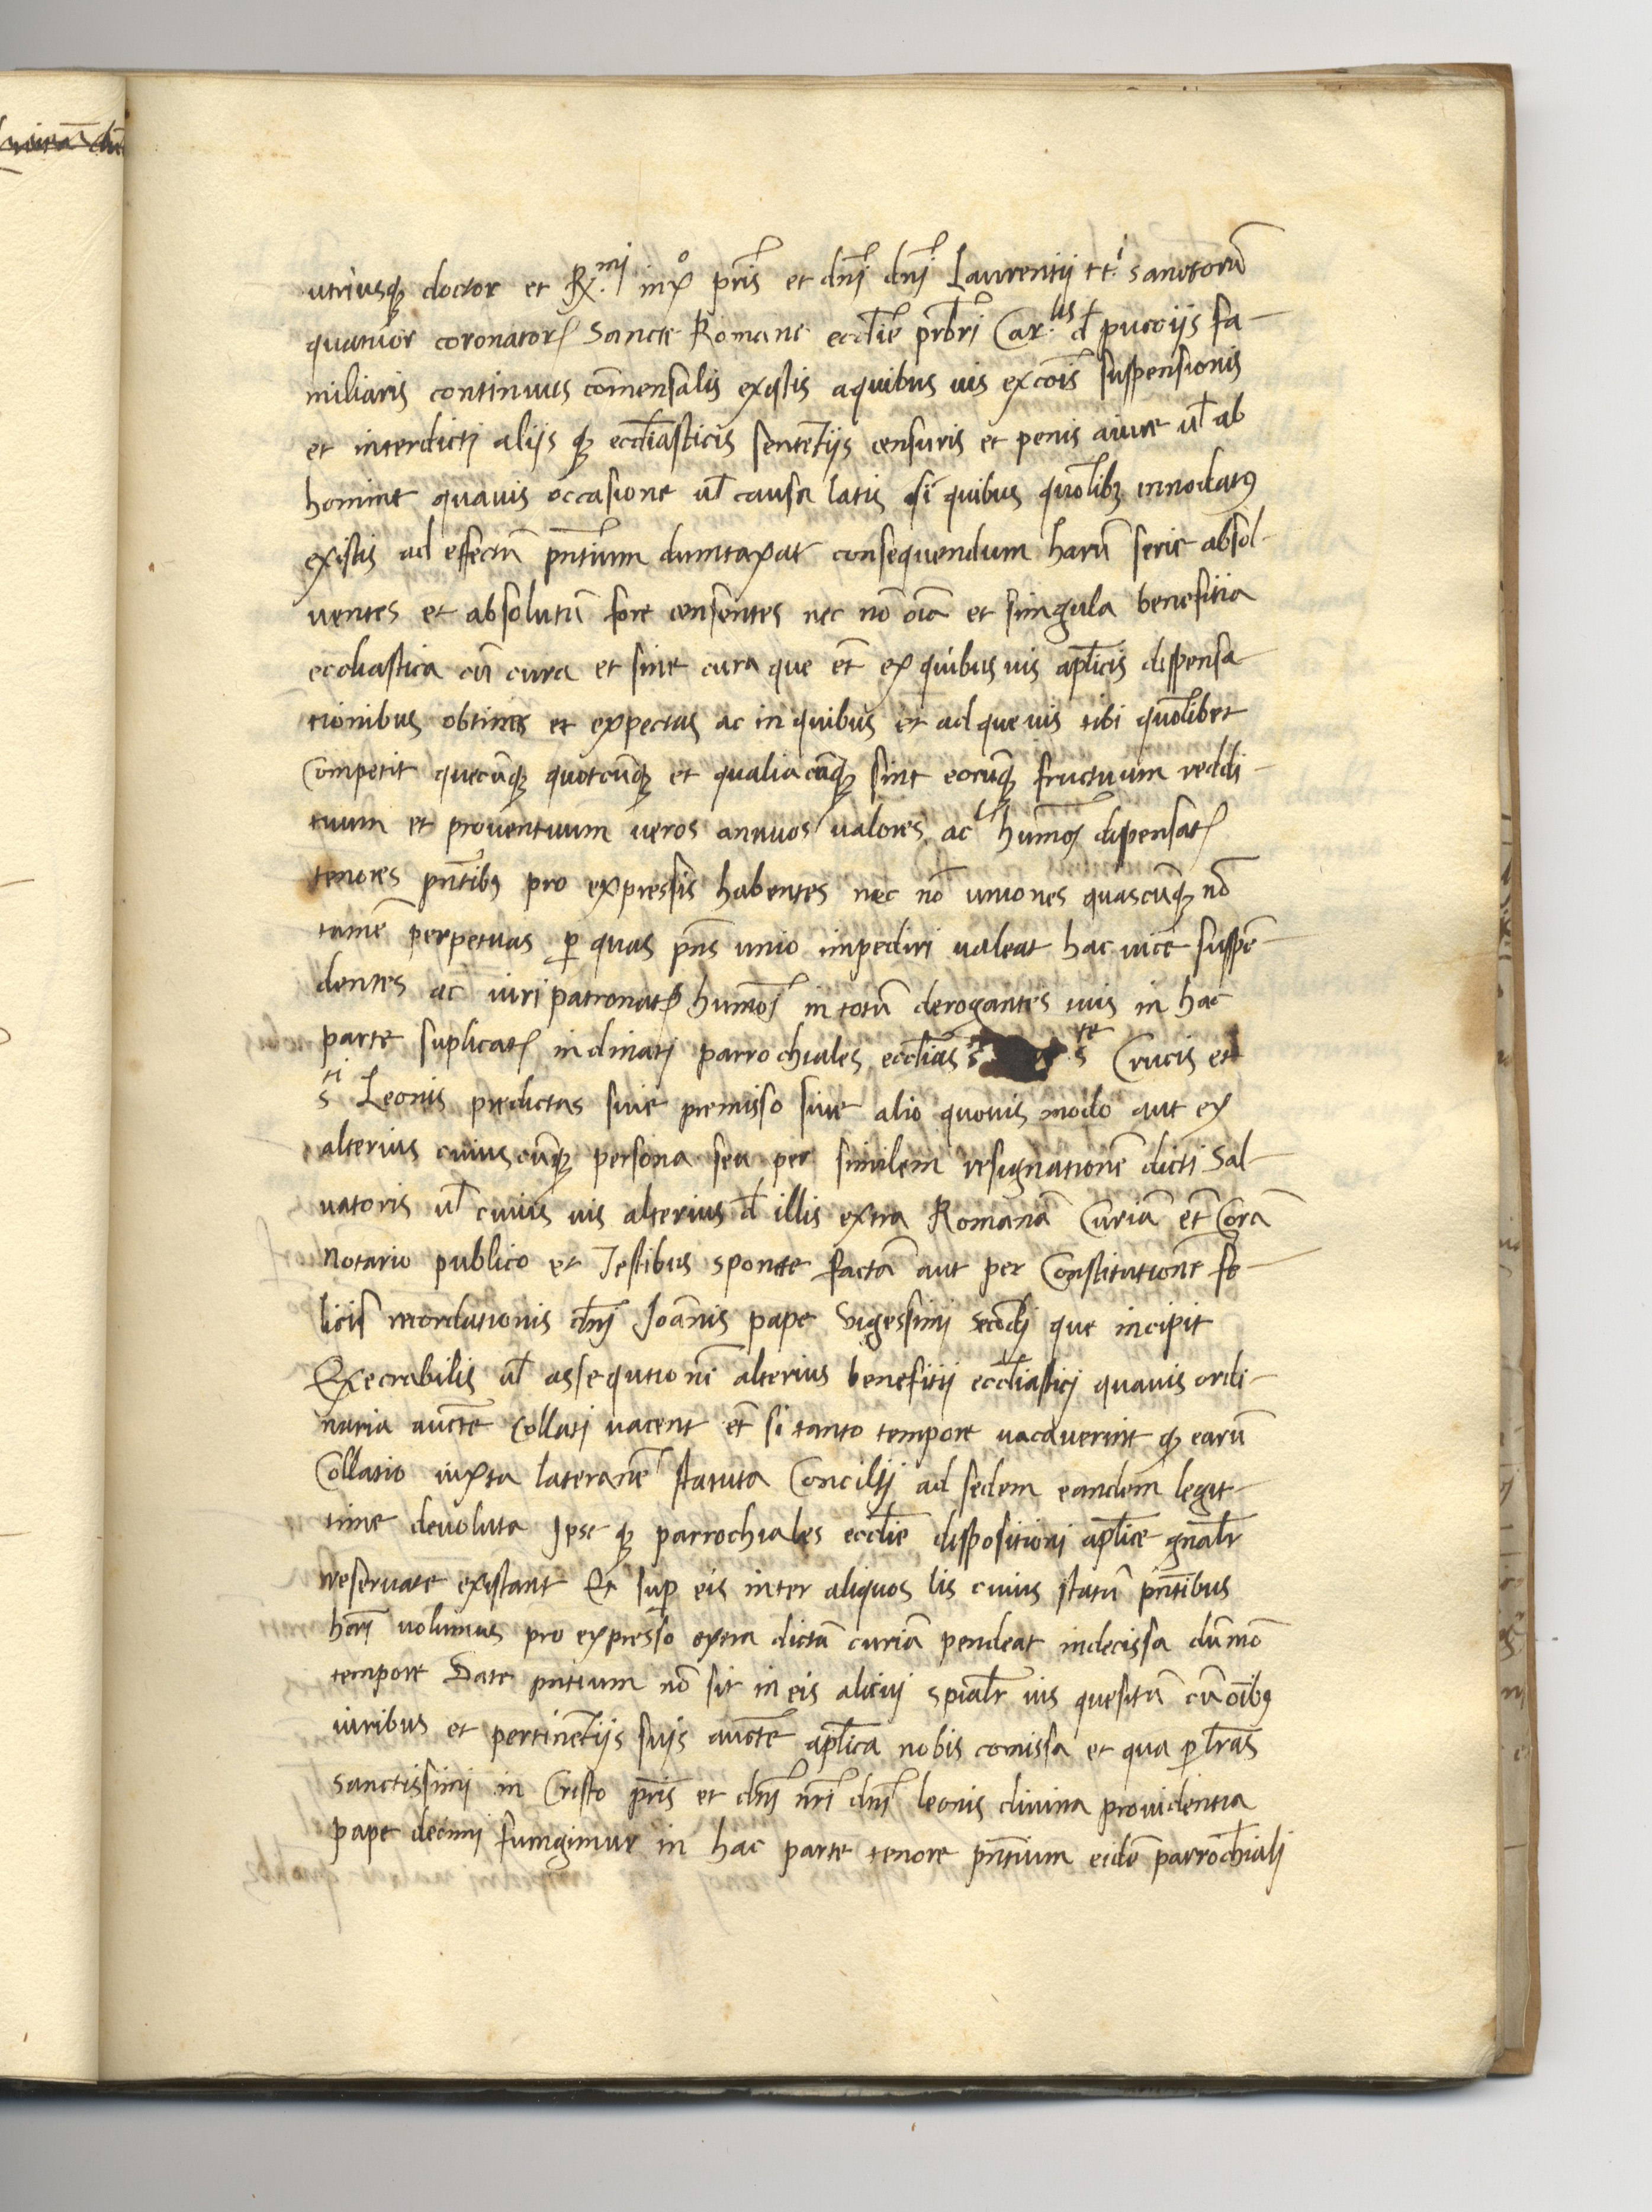 utriusq; doctor et R.mi in xº pr̄is et dn̄i dn̄i Laurentij tt.i sanctorū
quatuor coronator̄ Sancte Romane eccl̄ie pr̄bri Car.lis đ pucciis fa-
miliaris continuus com̄ensalis existis a quibus uis excōis suspensionis
et interdicti alijs q; eccl̄iasticis sentēt̄ijs censuris et penis a iure ul̄ ab
homine quauis occasione ul̄ causa latis si quibus quōlib; innodatꝰ
existis ad effectū pn̄tium dumtaxat consequendum harū serie absol-
uentes et absolutū fore censentes nec nō oīa et singula benefitia
eccliastica cū cura et sine cura que et̄ ex quibus uis apl̄icis dispensa-
tionibus obtines et expectas ac in quibus et ad que uis tibi quōlibet
Competit quecūq; quotcūq; et qualiacūq; sint eorūq; fructuum reddi-
tuum et prouentuum ueros annuos valores ac hūmōj dispensat̄
tenores pn̄tibꝰ pro expressis habentes nec nō uniones quascūq; nō
tamē perpetuas ꝑ quas pn̄s unio impediri ualeat hac uice suspē-
dentes ac iuri patronatꝰ hūmōj in totū derogantes tuis in hac
parte suplicat̄ inclinati parrochiales eccl̄ias s.te Crucis et
s.ti Leonis predictas siue premisso siue alio quouis modo aut ex
alterius cuiuscūq; persona seu per similem resignationē dicti Sal-
uatoris ul̄ cuius uis alterius đ illis extra Romanā Curiā et̄ Corā
notario publico et Testibus sponte factā aut per Constitutionē fe-
licis recordationis dn̄i Joānis pape Vigessimi secōdi que incipit
Execrabilis ul̄ assequtionē alterius benefitij eccl̄iastici quauis ordi-
naria auct̄e Collati uacent et̄ si tanto tempore uacauerint q; earū
Collatio iuxta lateranē statuta Concilij ad sedem eandem legit-
time deuoluta Ipse q; parrochiales eccl̄ie dispositioni apl̄ice gn̄alr̄
reseruate existant Et suꝑ eis inter aliquos lis cuius statū pn̄tibus
hr̄i uolumus pro expresso extra dictā curiā pendeat indecissa dūmō
tempore Date pn̄tium nō sit in eis alicui spialr̄ ius quesitū cū oībꝰ
iuribus et pertinēt̄ijs suis auct̄e apl̄ica nobis comissa et qua ꝑ lr̄as
sanctissimi in Cristo pr̄is et dn̄i nr̄i dn̄i leonis diuina prouidentia
pape decimi fungimur in hac parte tenore pn̄tium eidē parrochiali